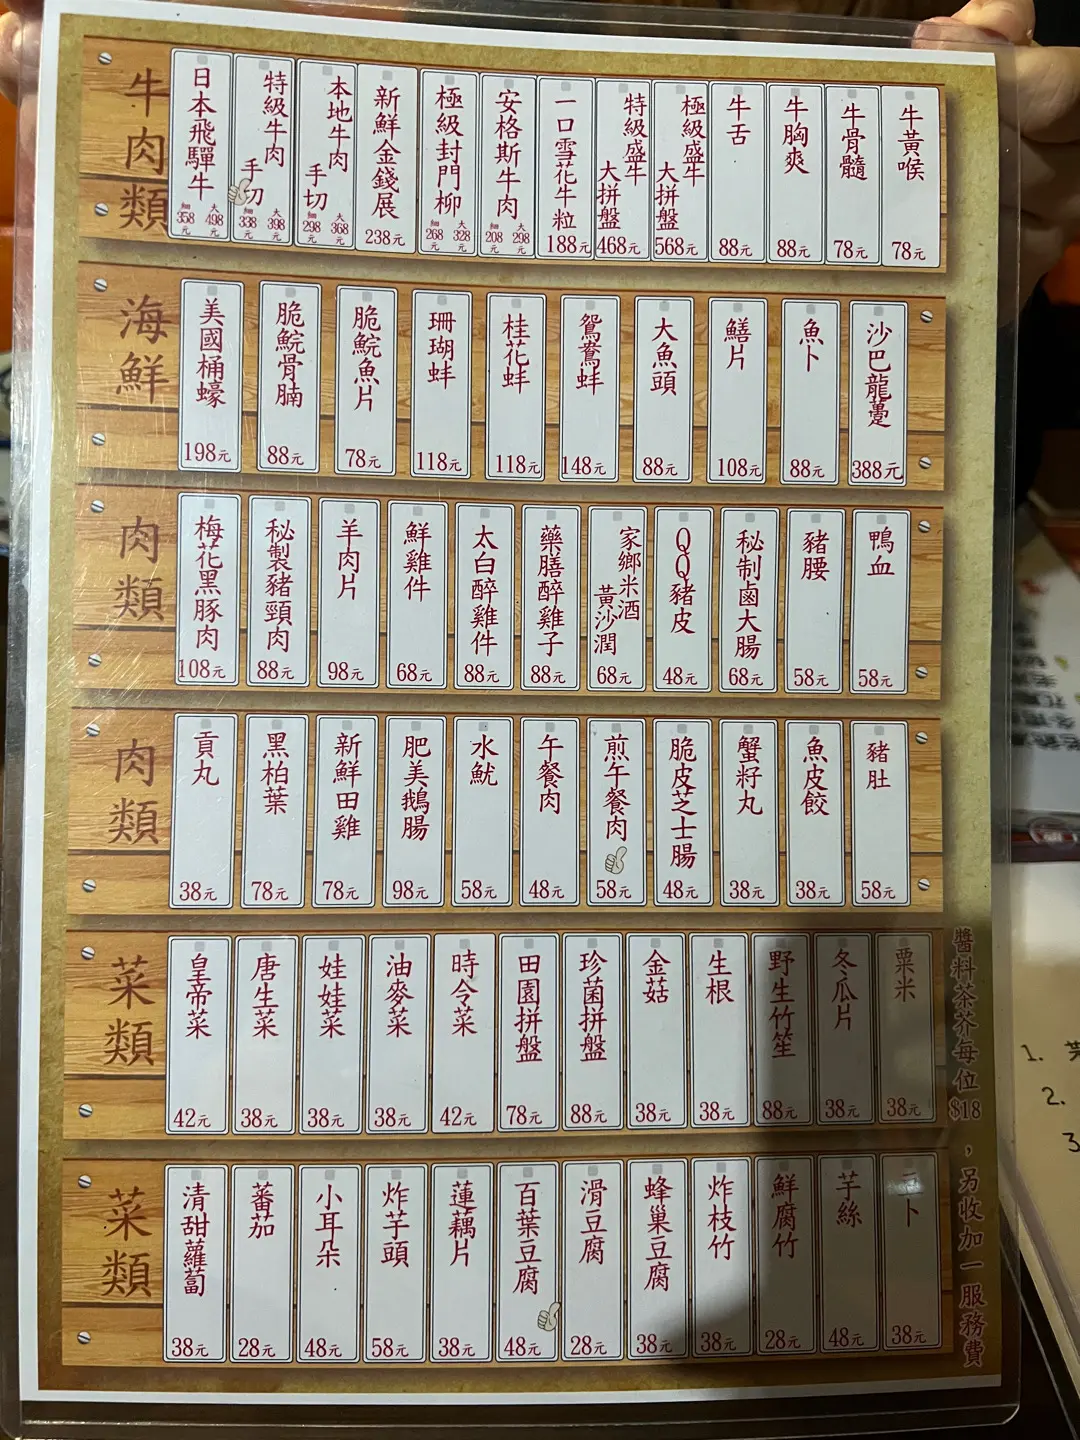 牛肉類
日本飛驒牛
細358元
大498元
特級牛肉
手切
細338元
大398元
本地牛肉
手切
細298元
大368元
新鮮金錢展
238元
極級封門柳
細268元
大328元
安格斯牛肉
細208元
大298元
一口雪花牛粒
188元
特級盛牛
大拼盤
468元
極級盛牛
大拼盤
568元
牛舌
88元
牛胸爽
88元
牛骨髓
78元
牛黃喉
78元
海鮮
美國桶蠔
198元
脆鯇骨腩
88元
脆鯇魚片
78元
珊瑚蚌
118元
桂花蚌
118元
鴛鴦蚌
148元
大魚頭
88元
鱔片
108元
魚卜
88元
沙巴龍躉
388元
肉類
梅花黑豚肉
108元
秘製豬頸肉
88元
羊肉片
98元
鮮雞件
68元
太白醉雞件
88元
藥膳醉雞子
88元
家鄉米酒
黃沙潤
68元
QQ豬皮
48元
秘制鹵大腸
68元
豬腰
58元
鴨血
58元
肉類
貢丸
38元
黑柏葉
78元
新鮮田雞
78元
肥美鵝腸
98元
水魷
58元
午餐肉
48元
煎午餐肉
58元
脆皮芝士腸
48元
蟹籽丸
38元
魚皮餃
38元
豬肚
58元
菜類
皇帝菜
42元
唐生菜
38元
娃娃菜
38元
油麥菜
38元
時令菜
42元
田園拼盤
78元
珍菌拼盤
88元
金菇
38元
生根
38元
野生竹笙
88元
冬瓜片
38元
粟米
38元
菜類
清甜蘿蔔
38元
蕃茄
28元
小耳朵
48元
炸芋頭
58元
蓮藕片
38元
百葉豆腐
48元
滑豆腐
28元
蜂巢豆腐
38元
炸枝竹
38元
鮮腐竹
28元
芋絲
48元
豆卜
38元
醬料茶芥每位$18，另收加一服務費
1.
2.
3